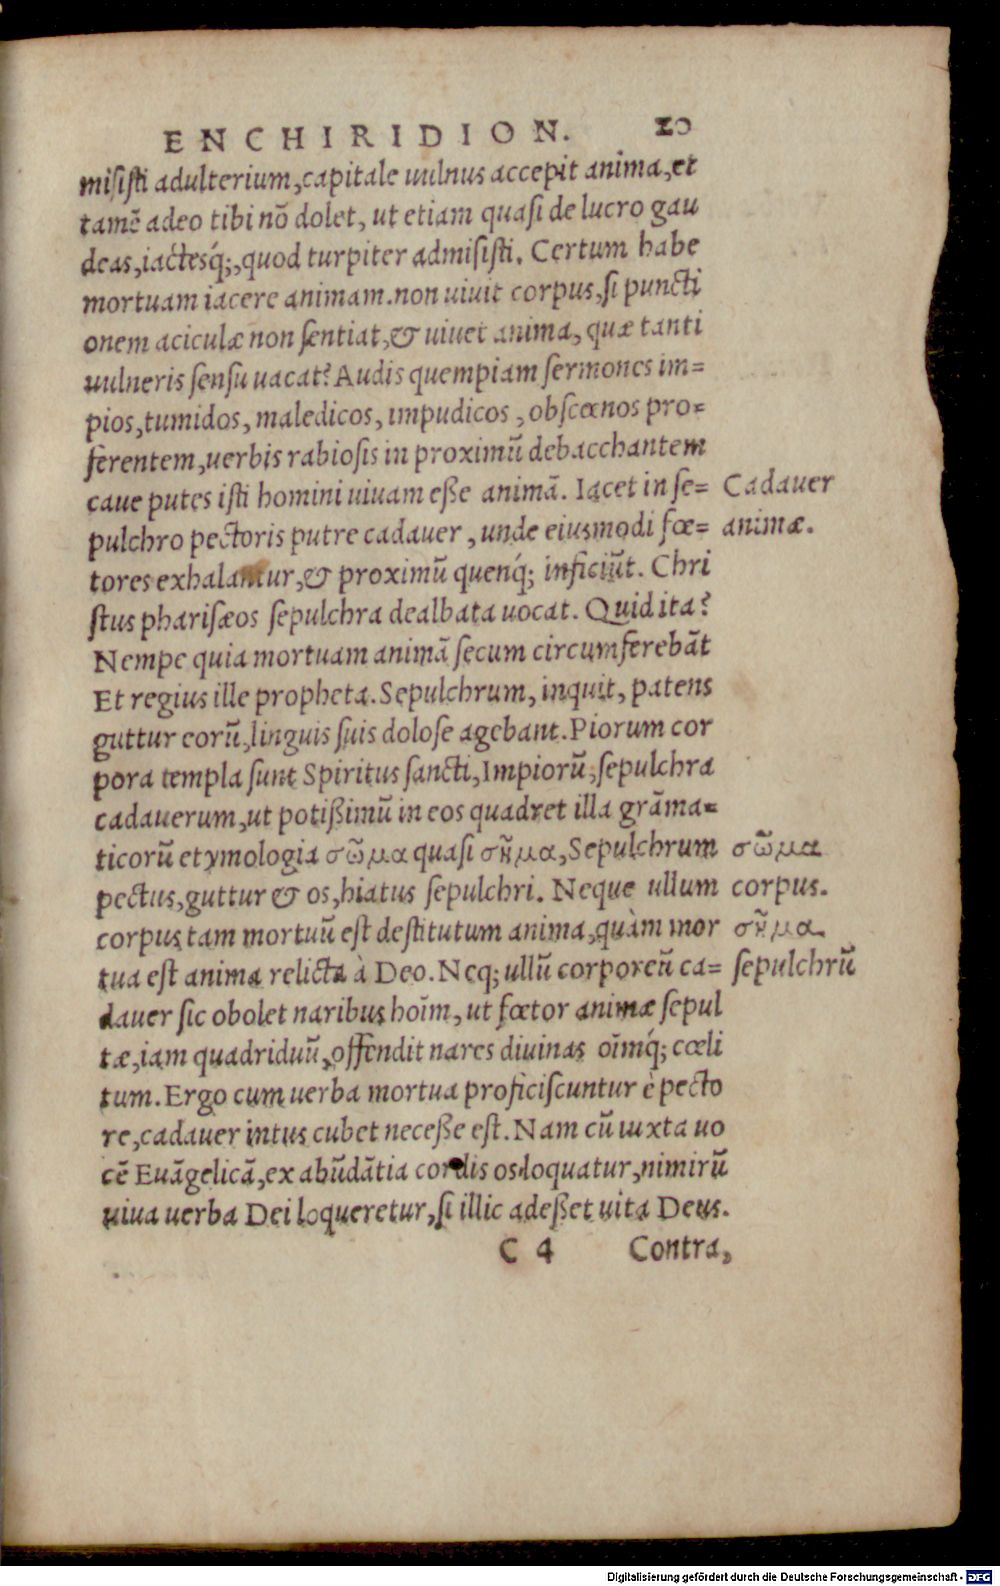 ENCHIRIDION. 20
misisti adulterium, capitale uulnus accepit anima, et
tamē adeo tibi nō dolet, ut etiam quasi de lucro gau
deas, iactesq́;, quod turpiter admisisti. Certum habe
mortuam iacere animam. non uiuit corpus, si puncti
onem aciculæ non sentiat, & uiuet anima, quæ tanti
uulneris sensu uacat? Audis quempiam sermones im=
pios, tumidos, maledicos, impudicos, obscœnos pro=
ferentem, uerbis rabiosis in proximū debacchantem
caue putes isti homini uiuam eße animā. Iacet in se= Cadauer
pulchro pectoris putre cadauer, unde eiusmodi fœ= animæ.
tores exhalantur, & proximū quenq́; inficiūt. Chri
stus pharisæos sepulchra dealbata uocat. Quid ita?
Nempe quia mortuam animā secum circumferebāt
Et regius ille propheta. Sepulchrum, inquit, patens
guttur eorū, linguis suis dolose agebant. Piorum cor
pora templa sunt Spiritus sancti, Impiorū, sepulchra
cadauerum, ut potißimū in eos quadret illa grāma=
ticorū etymologia σῶμα quasi σῆμα, Sepulchrum σῶμα
pectus, guttur & os, hiatus sepulchri. Neque ullum corpus.
corpus tam mortuū est destitutum anima, quàm mor σῆμα
tua est anima relicta à Deo. Neq; ullū corporeū ca= sepulchrū
dauer sic obolet naribus hoīm, ut fœtor animæ sepul
tæ, iam quadriduū, offendit nares diuinas oīmq́; cœli
tum. Ergo cum uerba mortua proficiscuntur è pecto
re, cadauer intus cubet neceße est. Nam cū iuxta uo
cē Euāgelicā, ex abūdātia cordis os loquatur, nimirū
uiua uerba Dei loqueretur, si illic adeßet uita Deus.
C 4 Contra,
Digitalisierung gefördert durch die Deutsche Forschungsgemeinschaft - DFG